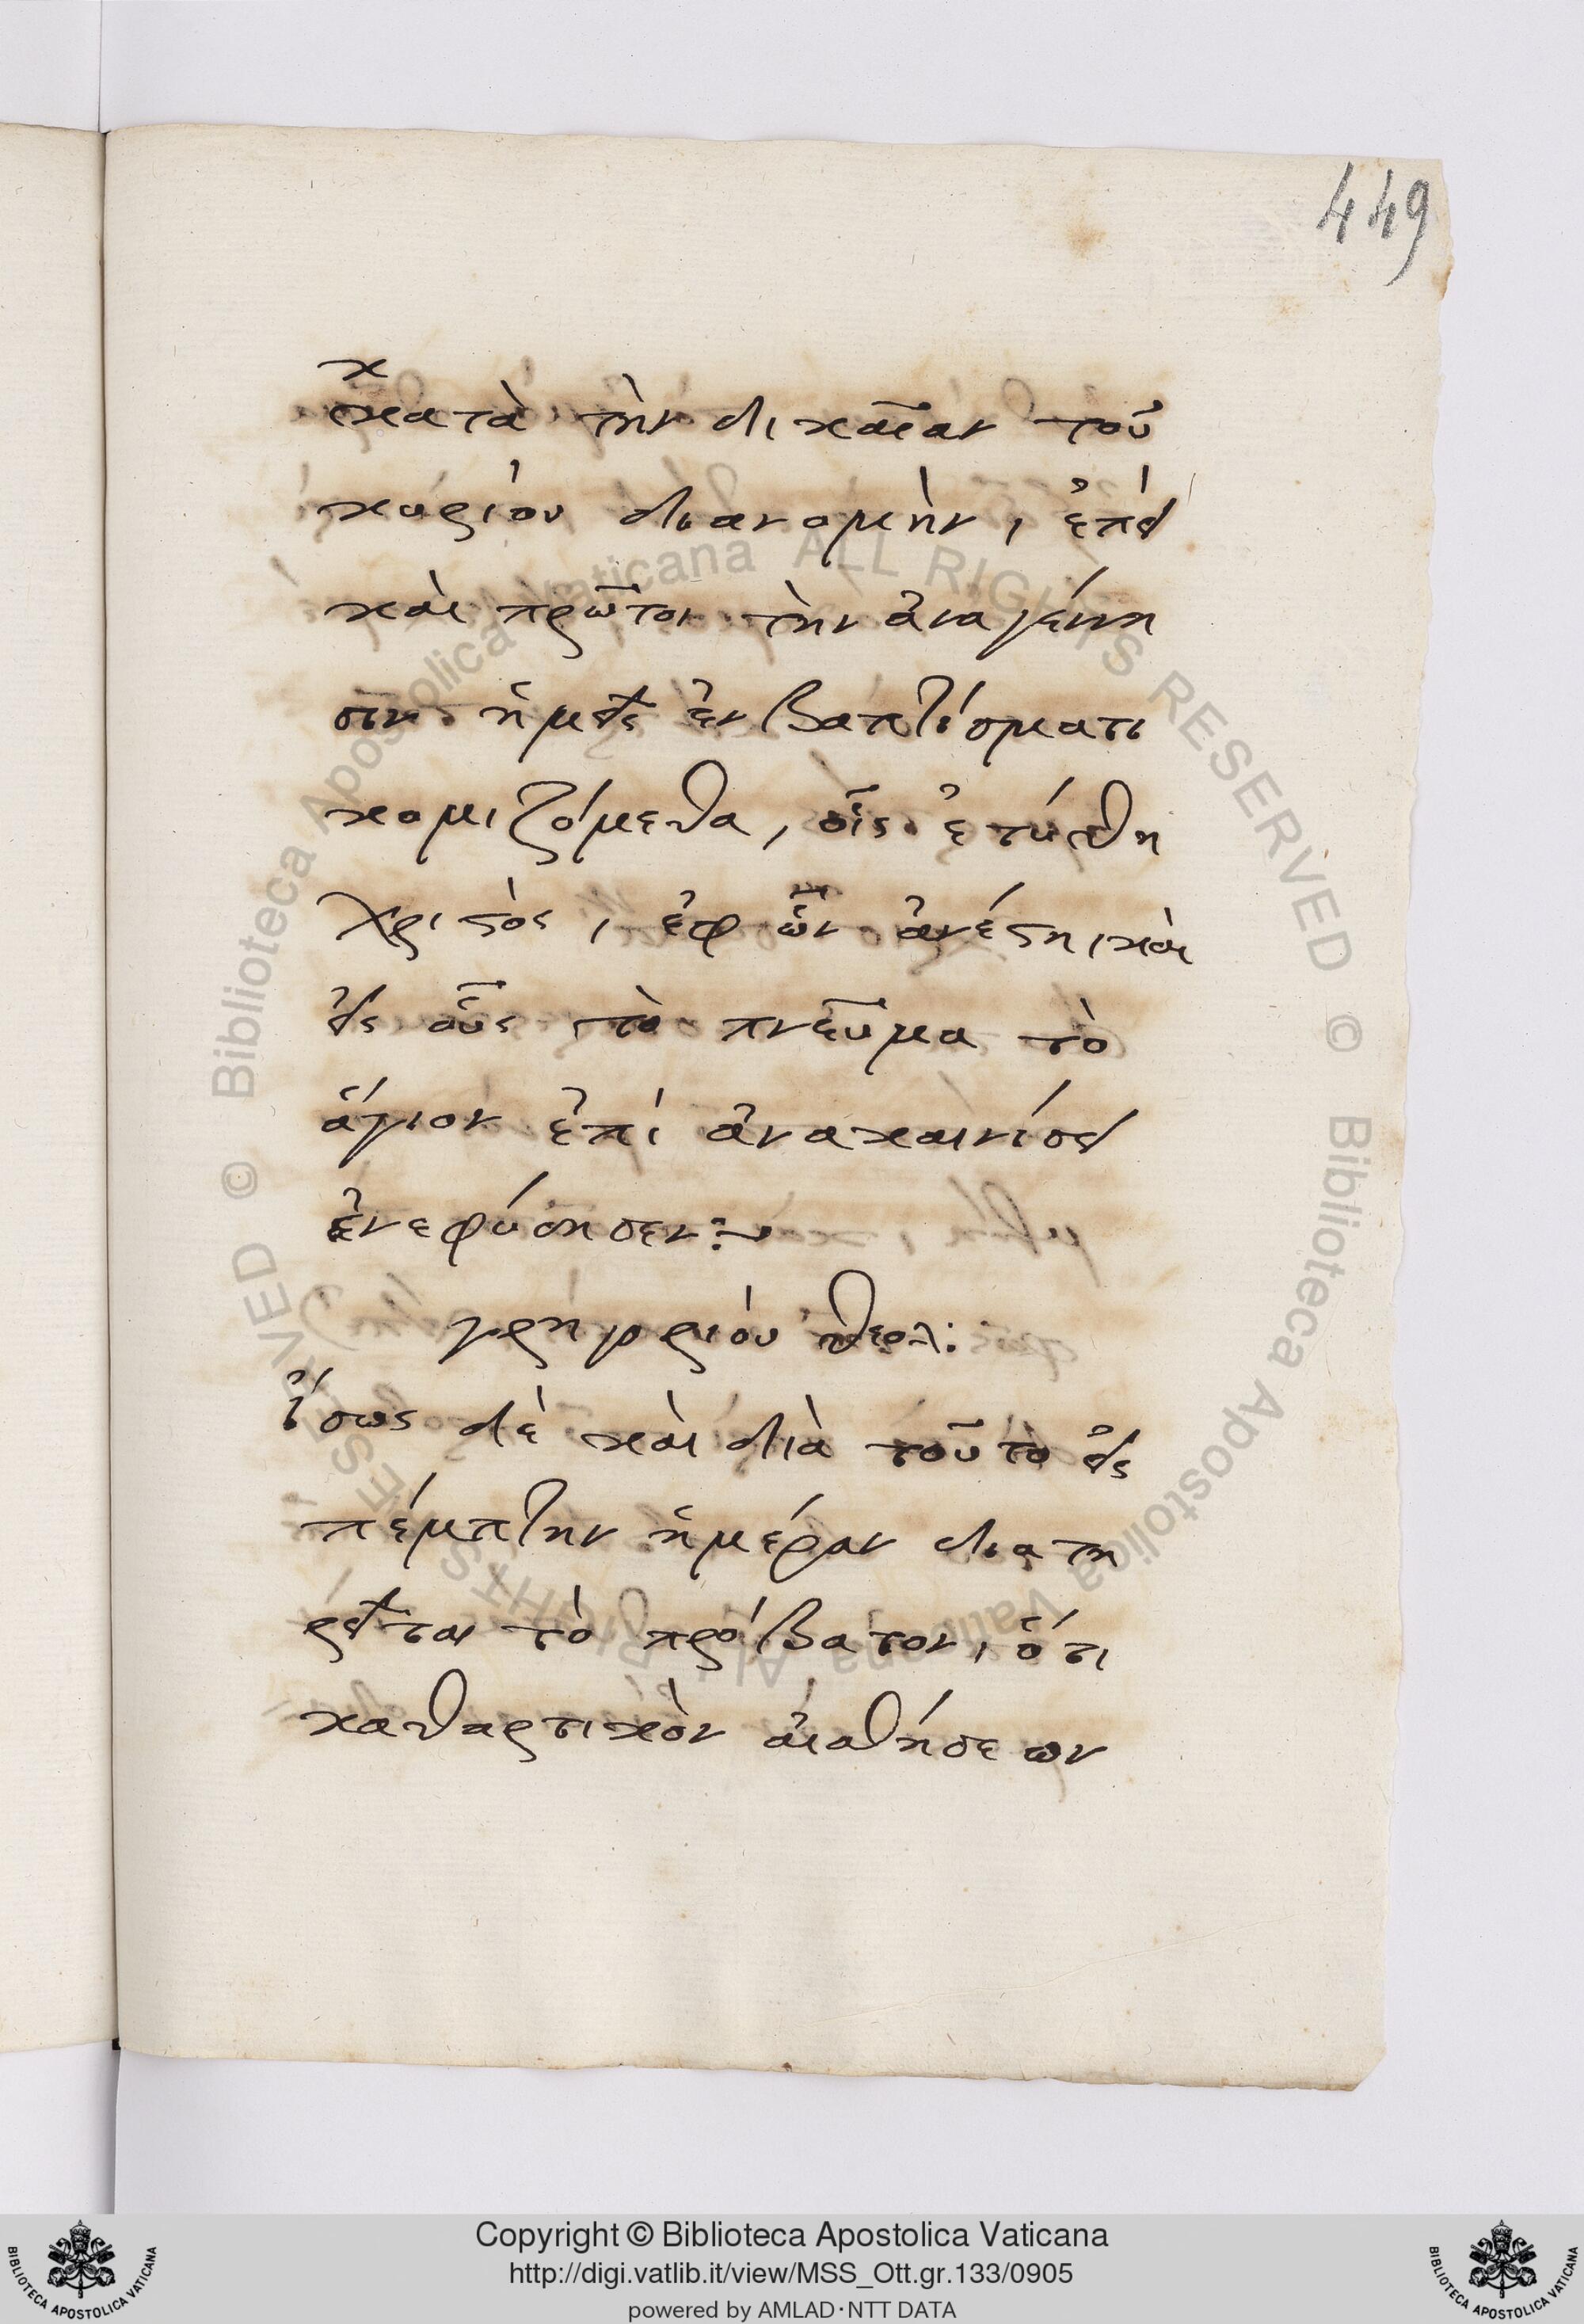 449
κατὰ τὴν δικαῖαν τοῦ
κυρίου διανομὴν, ἐπεὶ
καὶ πρῶτοι τὴν ἀναγέννη
σιν ἡμεῖς ἐν βαπτίσματι
κομιζόμεθα, οἷς ἐτύθη
χριστὸς, ἐφ ὧν ἀνέστη, καὶ
εἰς οὓς τὸ πνεῦμα τὸ
ἅγιον ἐπὶ ἀνακαινίσει
ἐνεφύσησεν:~
γρηγορίου θεολ:
ἴσως δὲ καὶ διὰ τοῦτο εἰς
πέμπτην ἡμέραν διατη
ρεῖται τὸ πρόβατον, ὅτι
καθαρτικὸν αἰσθήσεων
© Biblioteca Apostolica Vaticana ALL RIGHTS RESERVED © Biblioteca Apostolica Vaticana ALL RIGHTS RESERVED
Copyright © Biblioteca Apostolica Vaticana
http://digi.vatlib.it/view/MSS_Ott.gr.133/0905
powered by AMLAD·NTT DATA
BIBLIOTECA APOSTOLICA VATICANA
BIBLIOTECA APOSTOLICA VATICANA